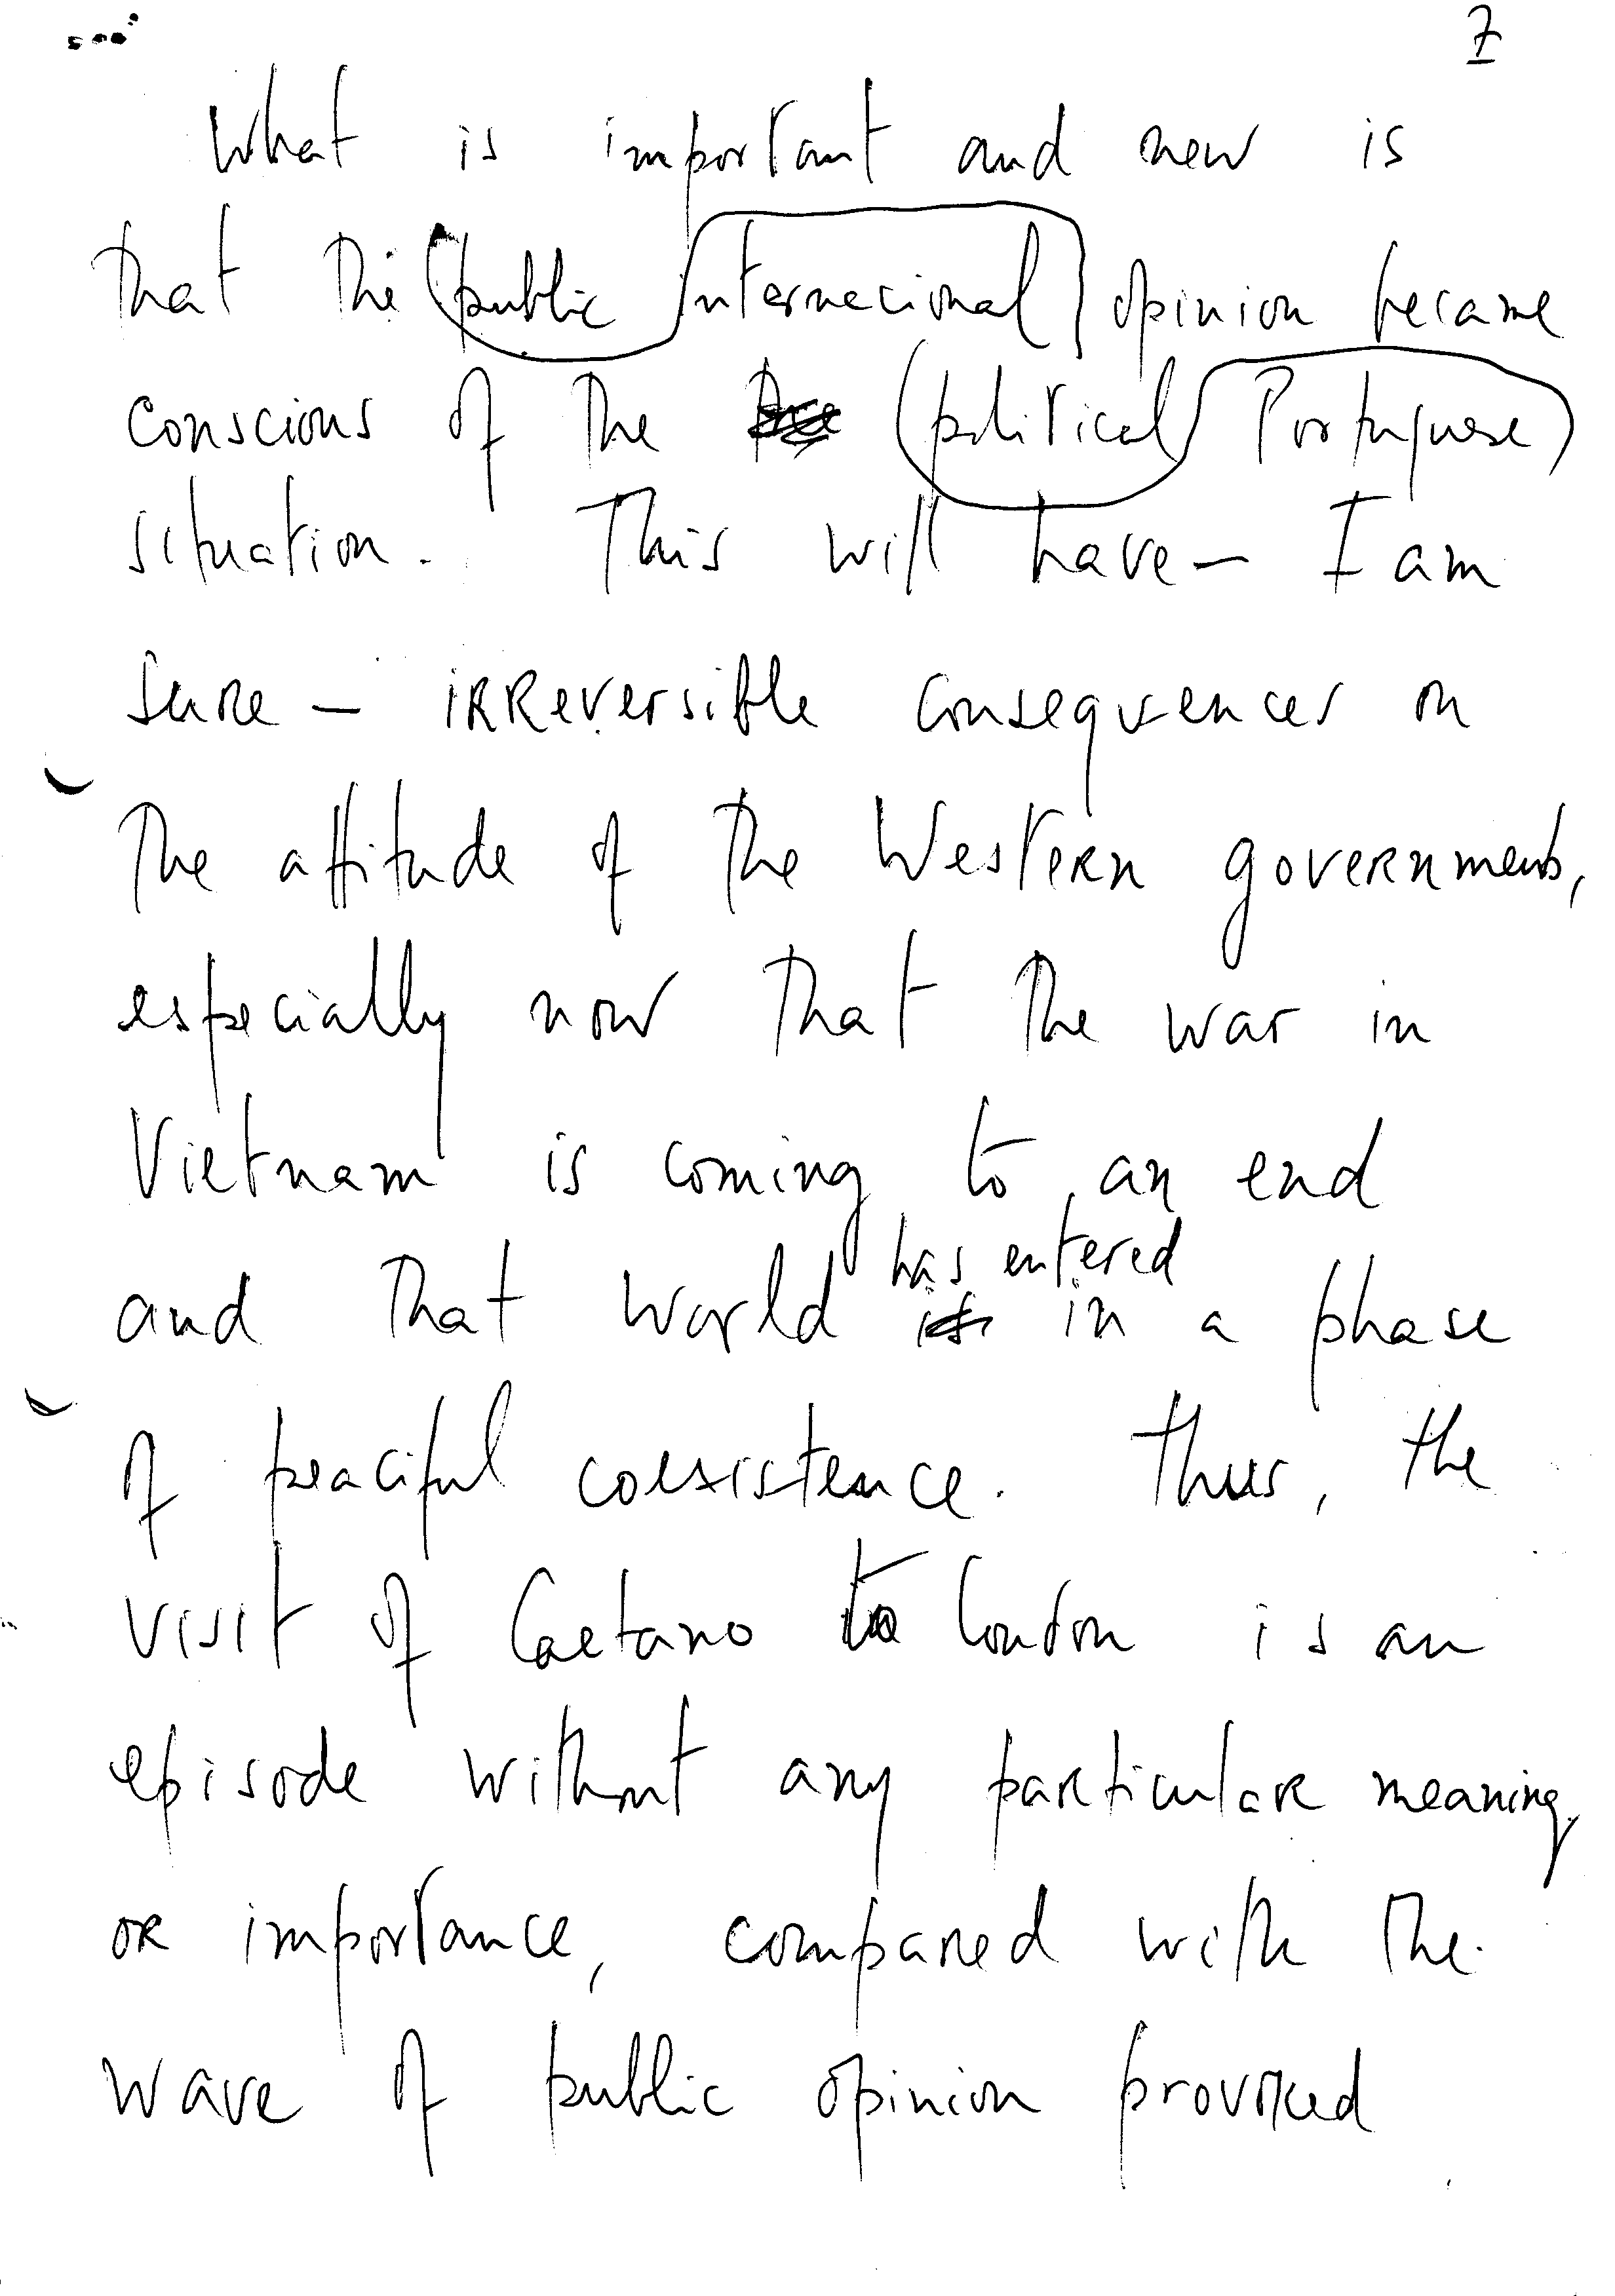 7
What is important and new is
that the public internacional opinion became
conscious of the political Portuguese
situation. This will have – I am
sure – irreversible consequences on
the attitude of the Western governments,
especially now that the war in
Vietnam is coming to an end
has entered
and that world is in a phase
of peaciful coexistence. Thus, the
visit of Caetano to London is an
episode without any particular meaning
or importance, compared with the
wave of public opinion provoked